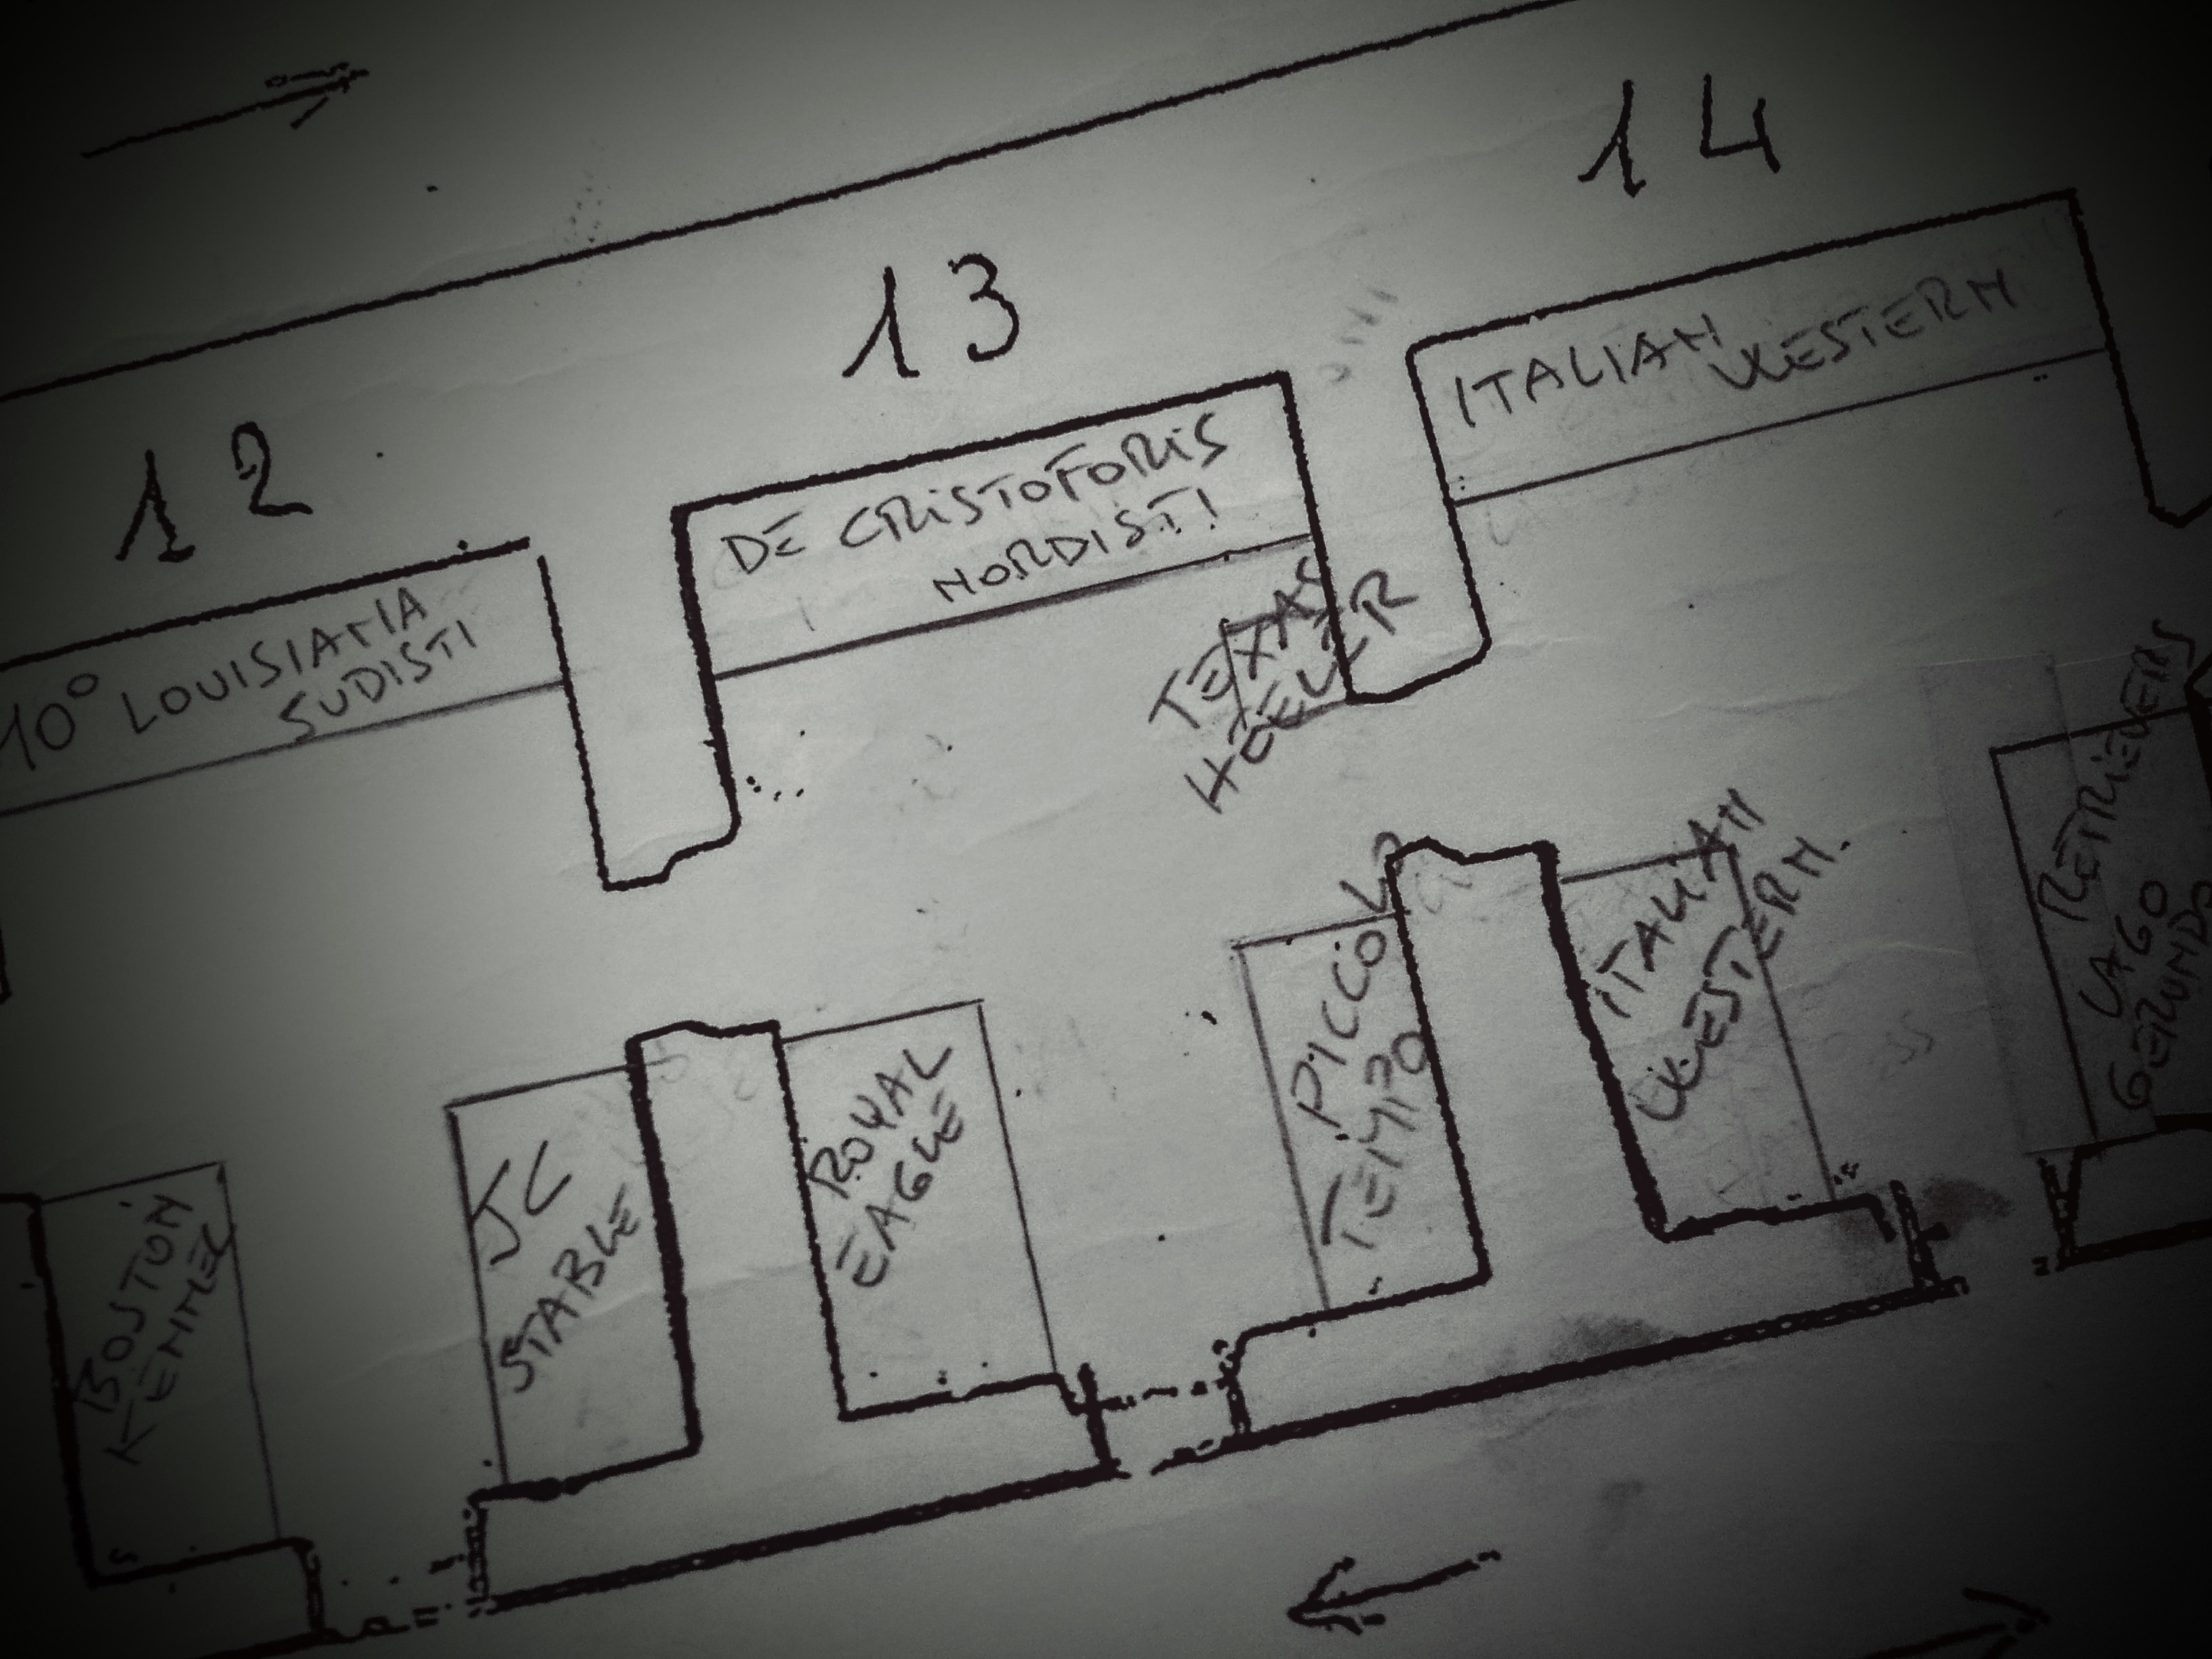 12
13
14
10° LOUISIANA
SUDISTI
DE CRISTOFORIS
NORDISTI
ITALIAN
WESTERN
TEXAS
HOELER
BOSTON
KENNEL
JC
STABLE
ROYAL
EAGLE
PICCOLO
TEMPO
ITALIAN
WESTERN.
RETRIEVERS
LAGO
GERUNDO